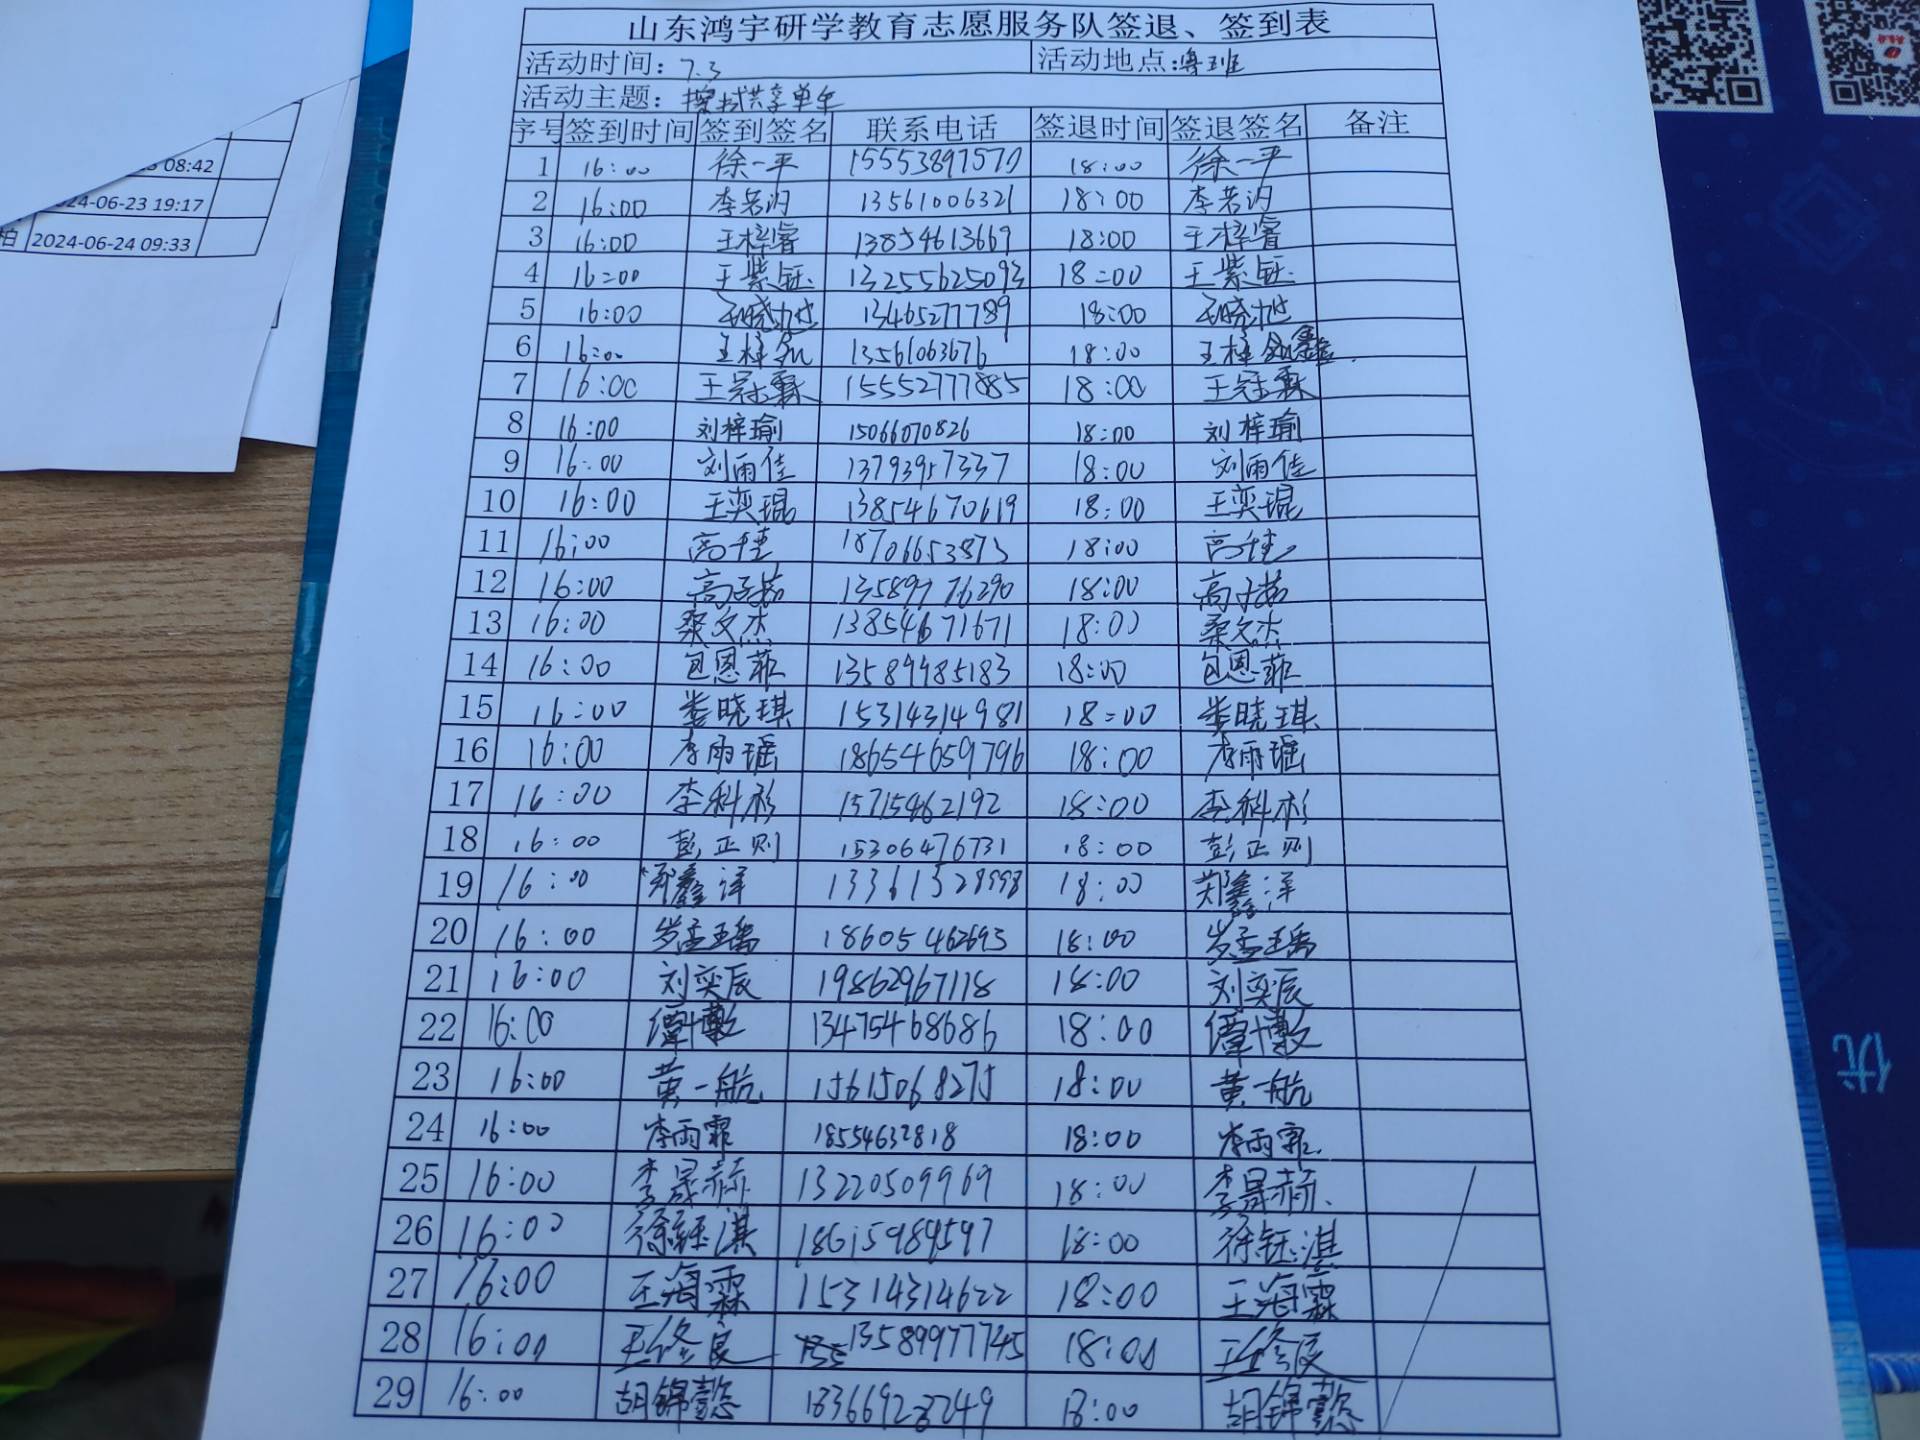 山东鸿宇研学教育志愿服务队签退、签到表
活动时间：7.3 活动地点：鲁班
活动主题：擦拭共享单车
序号 签到时间 签到签名 联系电话 签退时间 签退签名 备注
1 16:00 徐一平 15553897570 18:00 徐一平
2 16:00 李若汐 13561006321 18:00 李若汐
3 16:00 王梓睿 13854613669 18:00 王梓睿
4 16:00 王紫钰 13255625093 18:00 王紫钰
5 16:00 13465277789 18:00
6 16:00 王梓 13561063676 18:00 王梓
7 16:00 王冠霖 15552777885 18:00 王冠霖
8 16:00 刘梓瑜 15066070826 18:00 刘梓瑜
9 16:00 刘雨佳 13793957337 18:00 刘雨佳
10 16:00 王奕琨 13854670619 18:00 王奕琨
11 16:00 高千佳 18706653873 18:00 高千佳
12 16:00 高子茹 13589976290 18:00 高子茹
13 16:00 桑文杰 13854671671 18:00 桑文杰
14 16:00 包恩菲 13589985183 18:00 包恩菲
15 16:00 娄晓琪 15314314981 18:00 娄晓琪
16 16:00 李雨瑶 18654659796 18:00 李雨瑶
17 16:00 李科杉 15715462192 18:00 李科杉
18 16:00 彭正则 15306476731 18:00 彭正则
19 16:00 郑鑫洋 13361528998 18:00 郑鑫洋
20 16:00 岁孟瑀 18605462693 18:00 岁孟瑀
21 16:00 刘奕辰 19862967118 18:00 刘奕辰
22 16:00 谭博歆 13475468686 18:00 谭博
23 16:00 黄一航 15615068275 18:00 黄一航
24 16:00 李雨霏 18554632818 18:00 李雨霏
25 16:00 李晟赫 13220509969 18:00 李晟赫
26 16:00 徐钰淇 18615989597 18:00 徐钰淇
27 16:00 王海霖 15314314622 18:00 王海霖
28 16:00 王修良 13589977745 18:00 王修良
29 16:00 胡锦懿 18366923249 18:00 胡锦懿
08:42
24-06-23 19:17
柏 2024-06-24 09:33
优